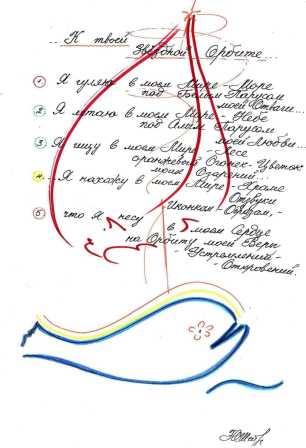 ...К твоей
Звёздной Орбите...
1 Я гуляю в моём Мире - Море
под Белым Парусом
моей Отваги...
2 Я летаю в моём Мире - Небе
под Алым Парусом
моей Любви...
3 Я ищу в моём Мире - Лесе
оранжевый Огонёк - Цветок
моих Озарений...
4 ...Я нахожу в моём Мире - Храме
Отзвуки
Иконкам - Образам, -
5 что я несу в моём Сердце
на Орбиту моей Веры
- Устремлений -
- Откровений.